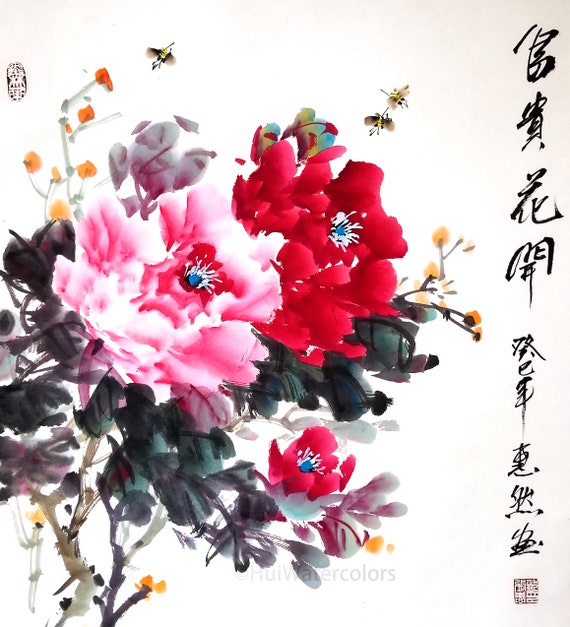 富貴花開
癸巳年惠然画
©HuiWatercolors